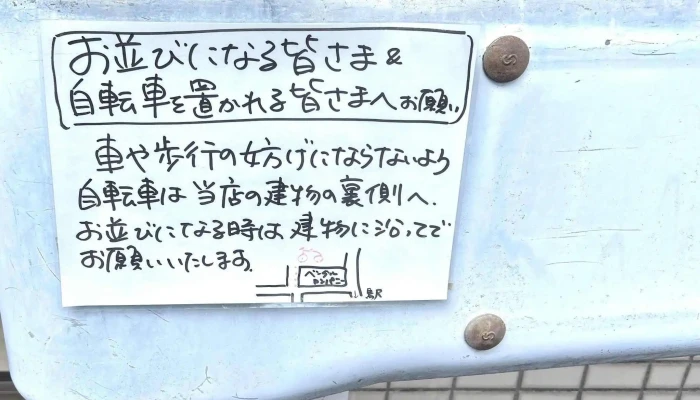 お並びになる皆さま&
自転車を置かれる皆さまへお願い
車や歩行の妨げにならないよう
自転車は当店の建物の裏側へ.
お並びになる時は建物に沿ってで
お願いいたします。
ベンガル
カンパニー
S
S